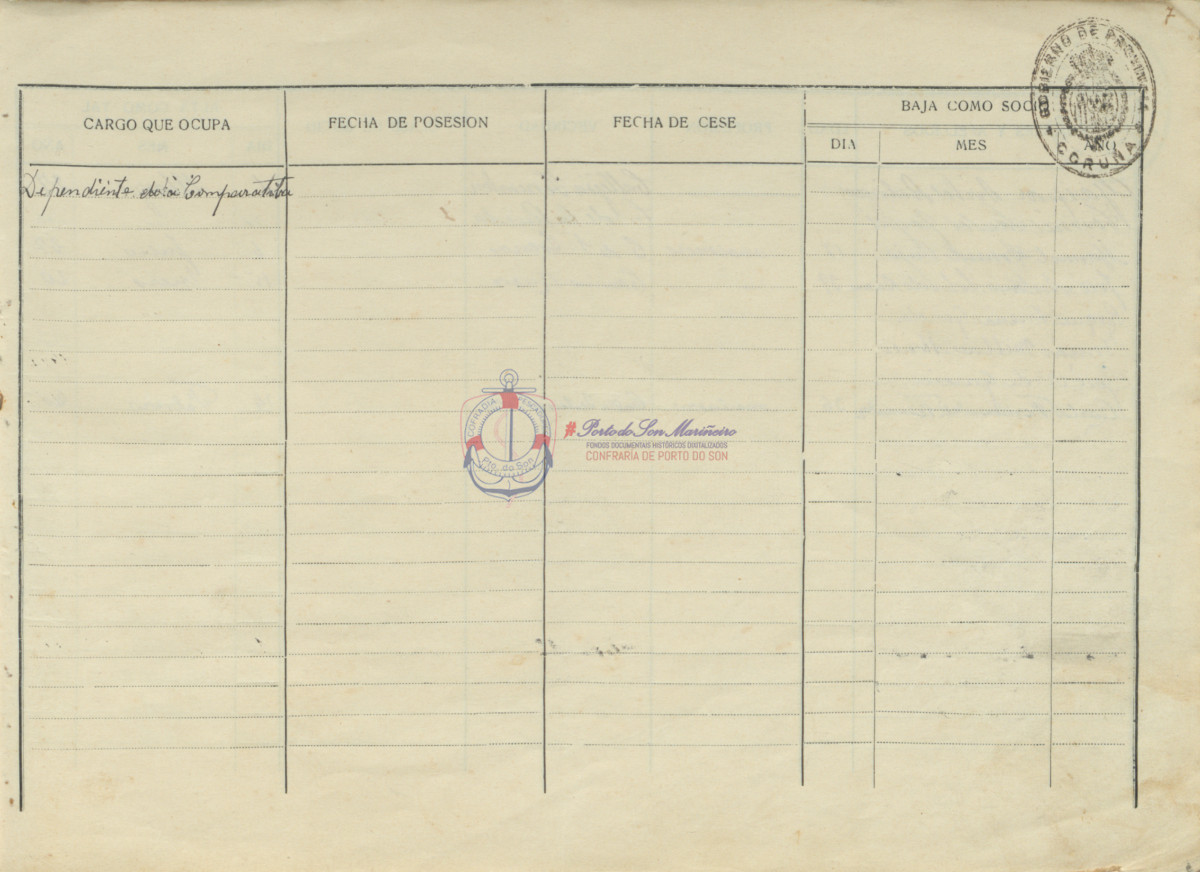 7
GOBIERNO DE PROVINCIA
CORUÑA
CARGO QUE OCUPA
FECHA DE POSESION
FECHA DE CESE
BAJA COMO SOCI
DIA
MES
AÑO
Dependiente de la
COFRADIA
PESCADORES
Pto. do Son
#Porto do Son Mariñeiro
FONDOS DOCUMENTAIS HISTÓRICOS DIXITALIZADOS
CONFRARÍA DE PORTO DO SON